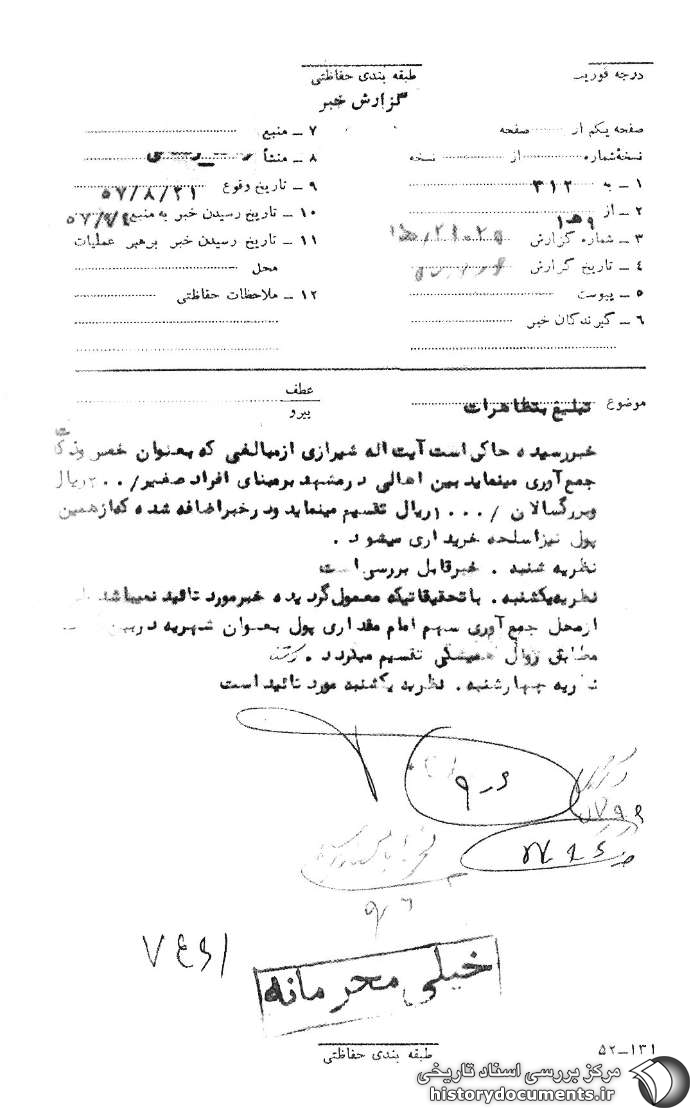 درجه فوریت
طبقه بندی حفاظتی
گزارش خبر
صفحه یکم از صفحه
نسخهٔ شماره از نسخه
۱ ــ به ۳۱۲
۲ ــ از ۹ه‍۱
۳ ــ شماره گزارش
۴ ــ تاریخ گزارش
۵ ــ پیوست
۶ ــ گیرندگان خبر
۷ ــ منبع
۸ ــ منشأ
۹ ــ تاریخ وقوع ۵۷/۸/۲۱
۱۰ ــ تاریخ رسیدن خبر به منبع ۵۷/۹/۴
۱۱ ــ تاریخ رسیدن خبر برهبر عملیات
محل
۱۲ ــ ملاحظات حفاظتی
عطف
پیرو
موضوع تبلیغ بتظاهرات
خبر رسیده حاکی است آیت اله شیرازی از مبالغی که بعنوان خمس و ذکات
جمع آوری مینماید بین اهالی در مشهد برمبنای افراد صغیر /۲۰۰ریال
وبزرگسالان /۱۰۰۰ریال تقسیم مینماید ودرخبراضافه شده که ازهمین
پول نیز اسلحه خریداری میشود .
نظریه شنبه . خبرقابل بررسی است
نظریه یکشنبه . با تحقیقاتیکه معمول گردیده خبر مورد تائید نمیباشد
ازمحل جمع آوری سهم امام مقداری پول بعنوان شهریه دربین
مطابق روال همیشگی تقسیم میگردد .
نظریه چهارشنبه . نظریه یکشنبه مورد تائید است
۶ر۹
خیلی محرمانه
طبقه بندی حفاظتی
۵۲ــ۱۳۱
مرکز بررسی اسناد تاریخی
historydocuments.ir